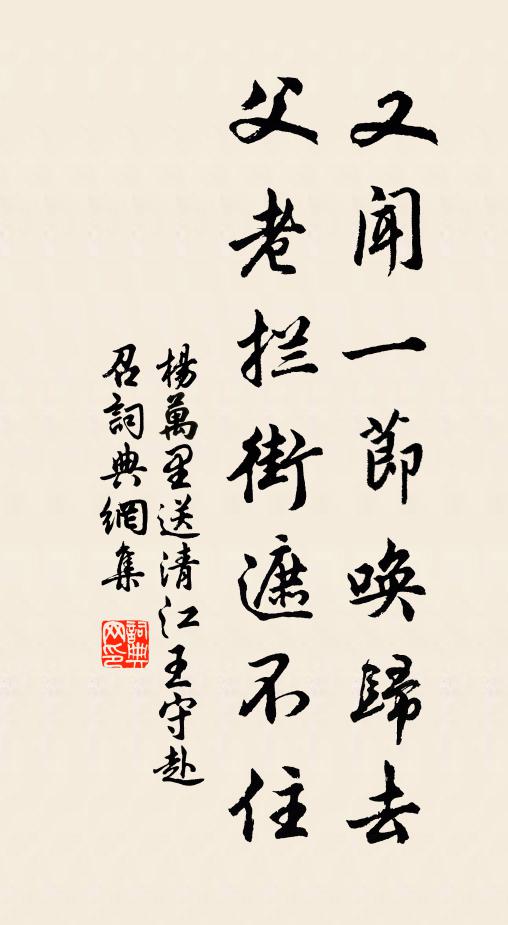 又闻一節唤歸去
父老拦街遮不住
楊萬里送清江王守赴
召詞典網集
詞典网印